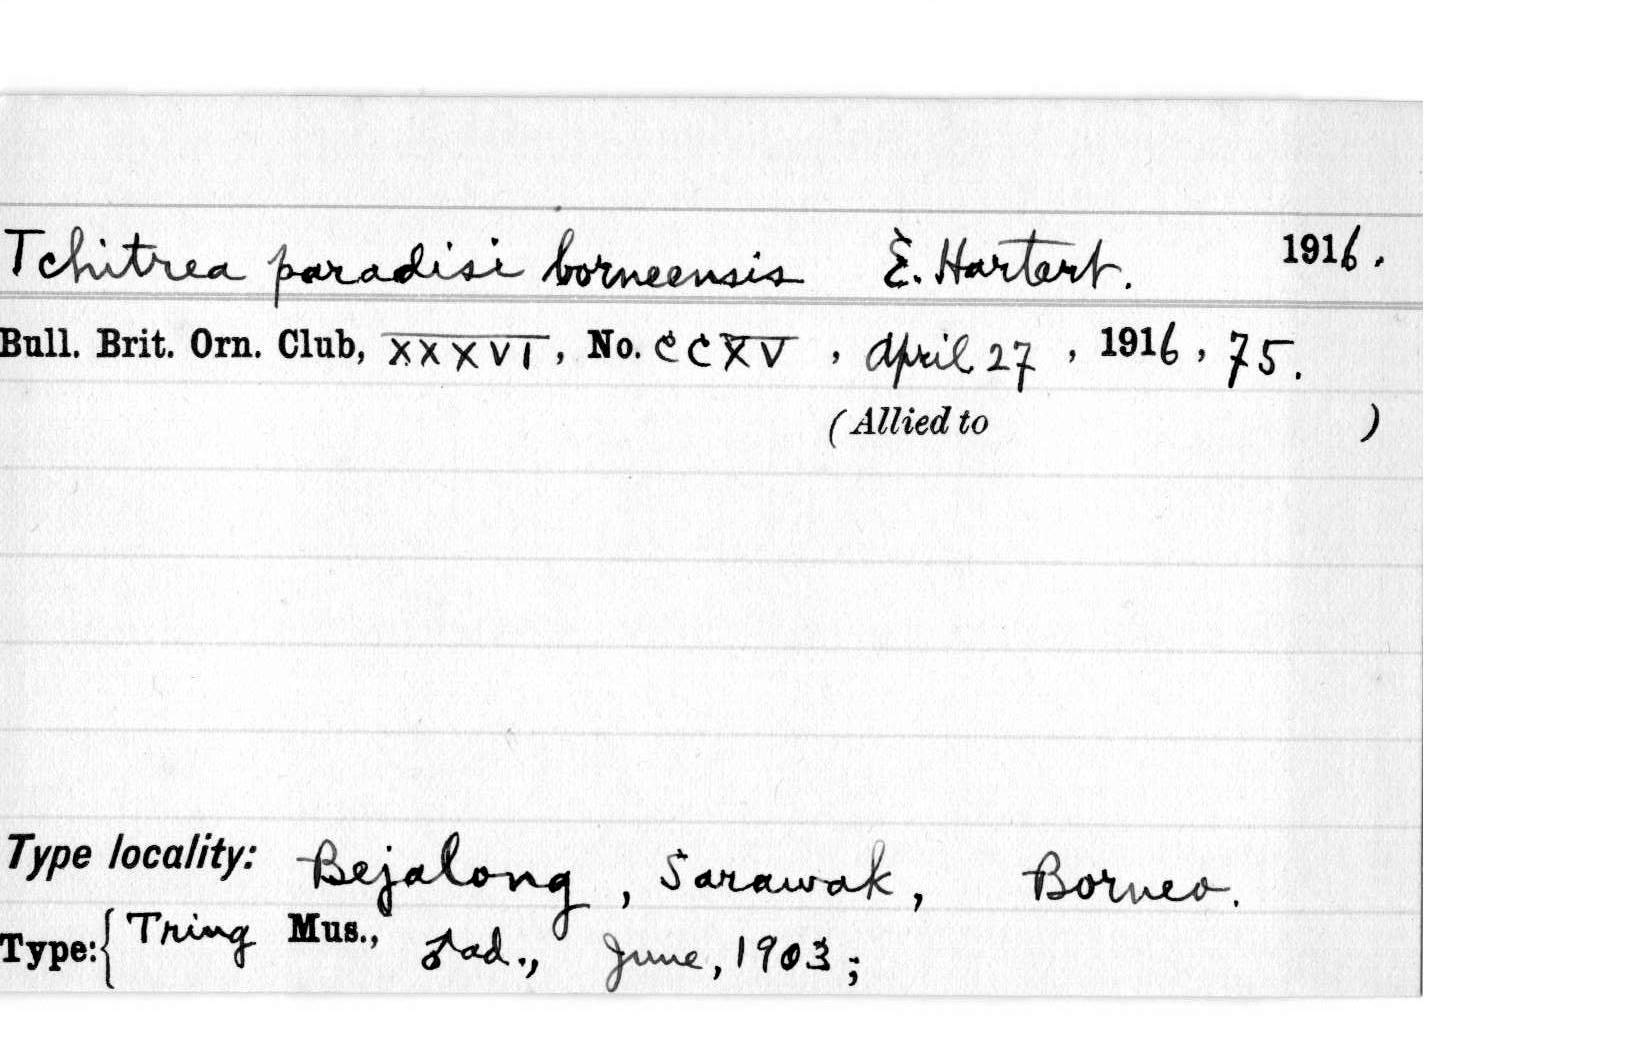 Tchitrea paradisi borneensis E. Hartert. 1916.
Bull. Brit. Orn. Club, XXXVI, No. CCXV, April 27, 1916, 75.
(Allied to )
Type locality: Bejalong, Sarawak, Borneo.
Type: { Tring Mus., ♂ ad., June, 1903;